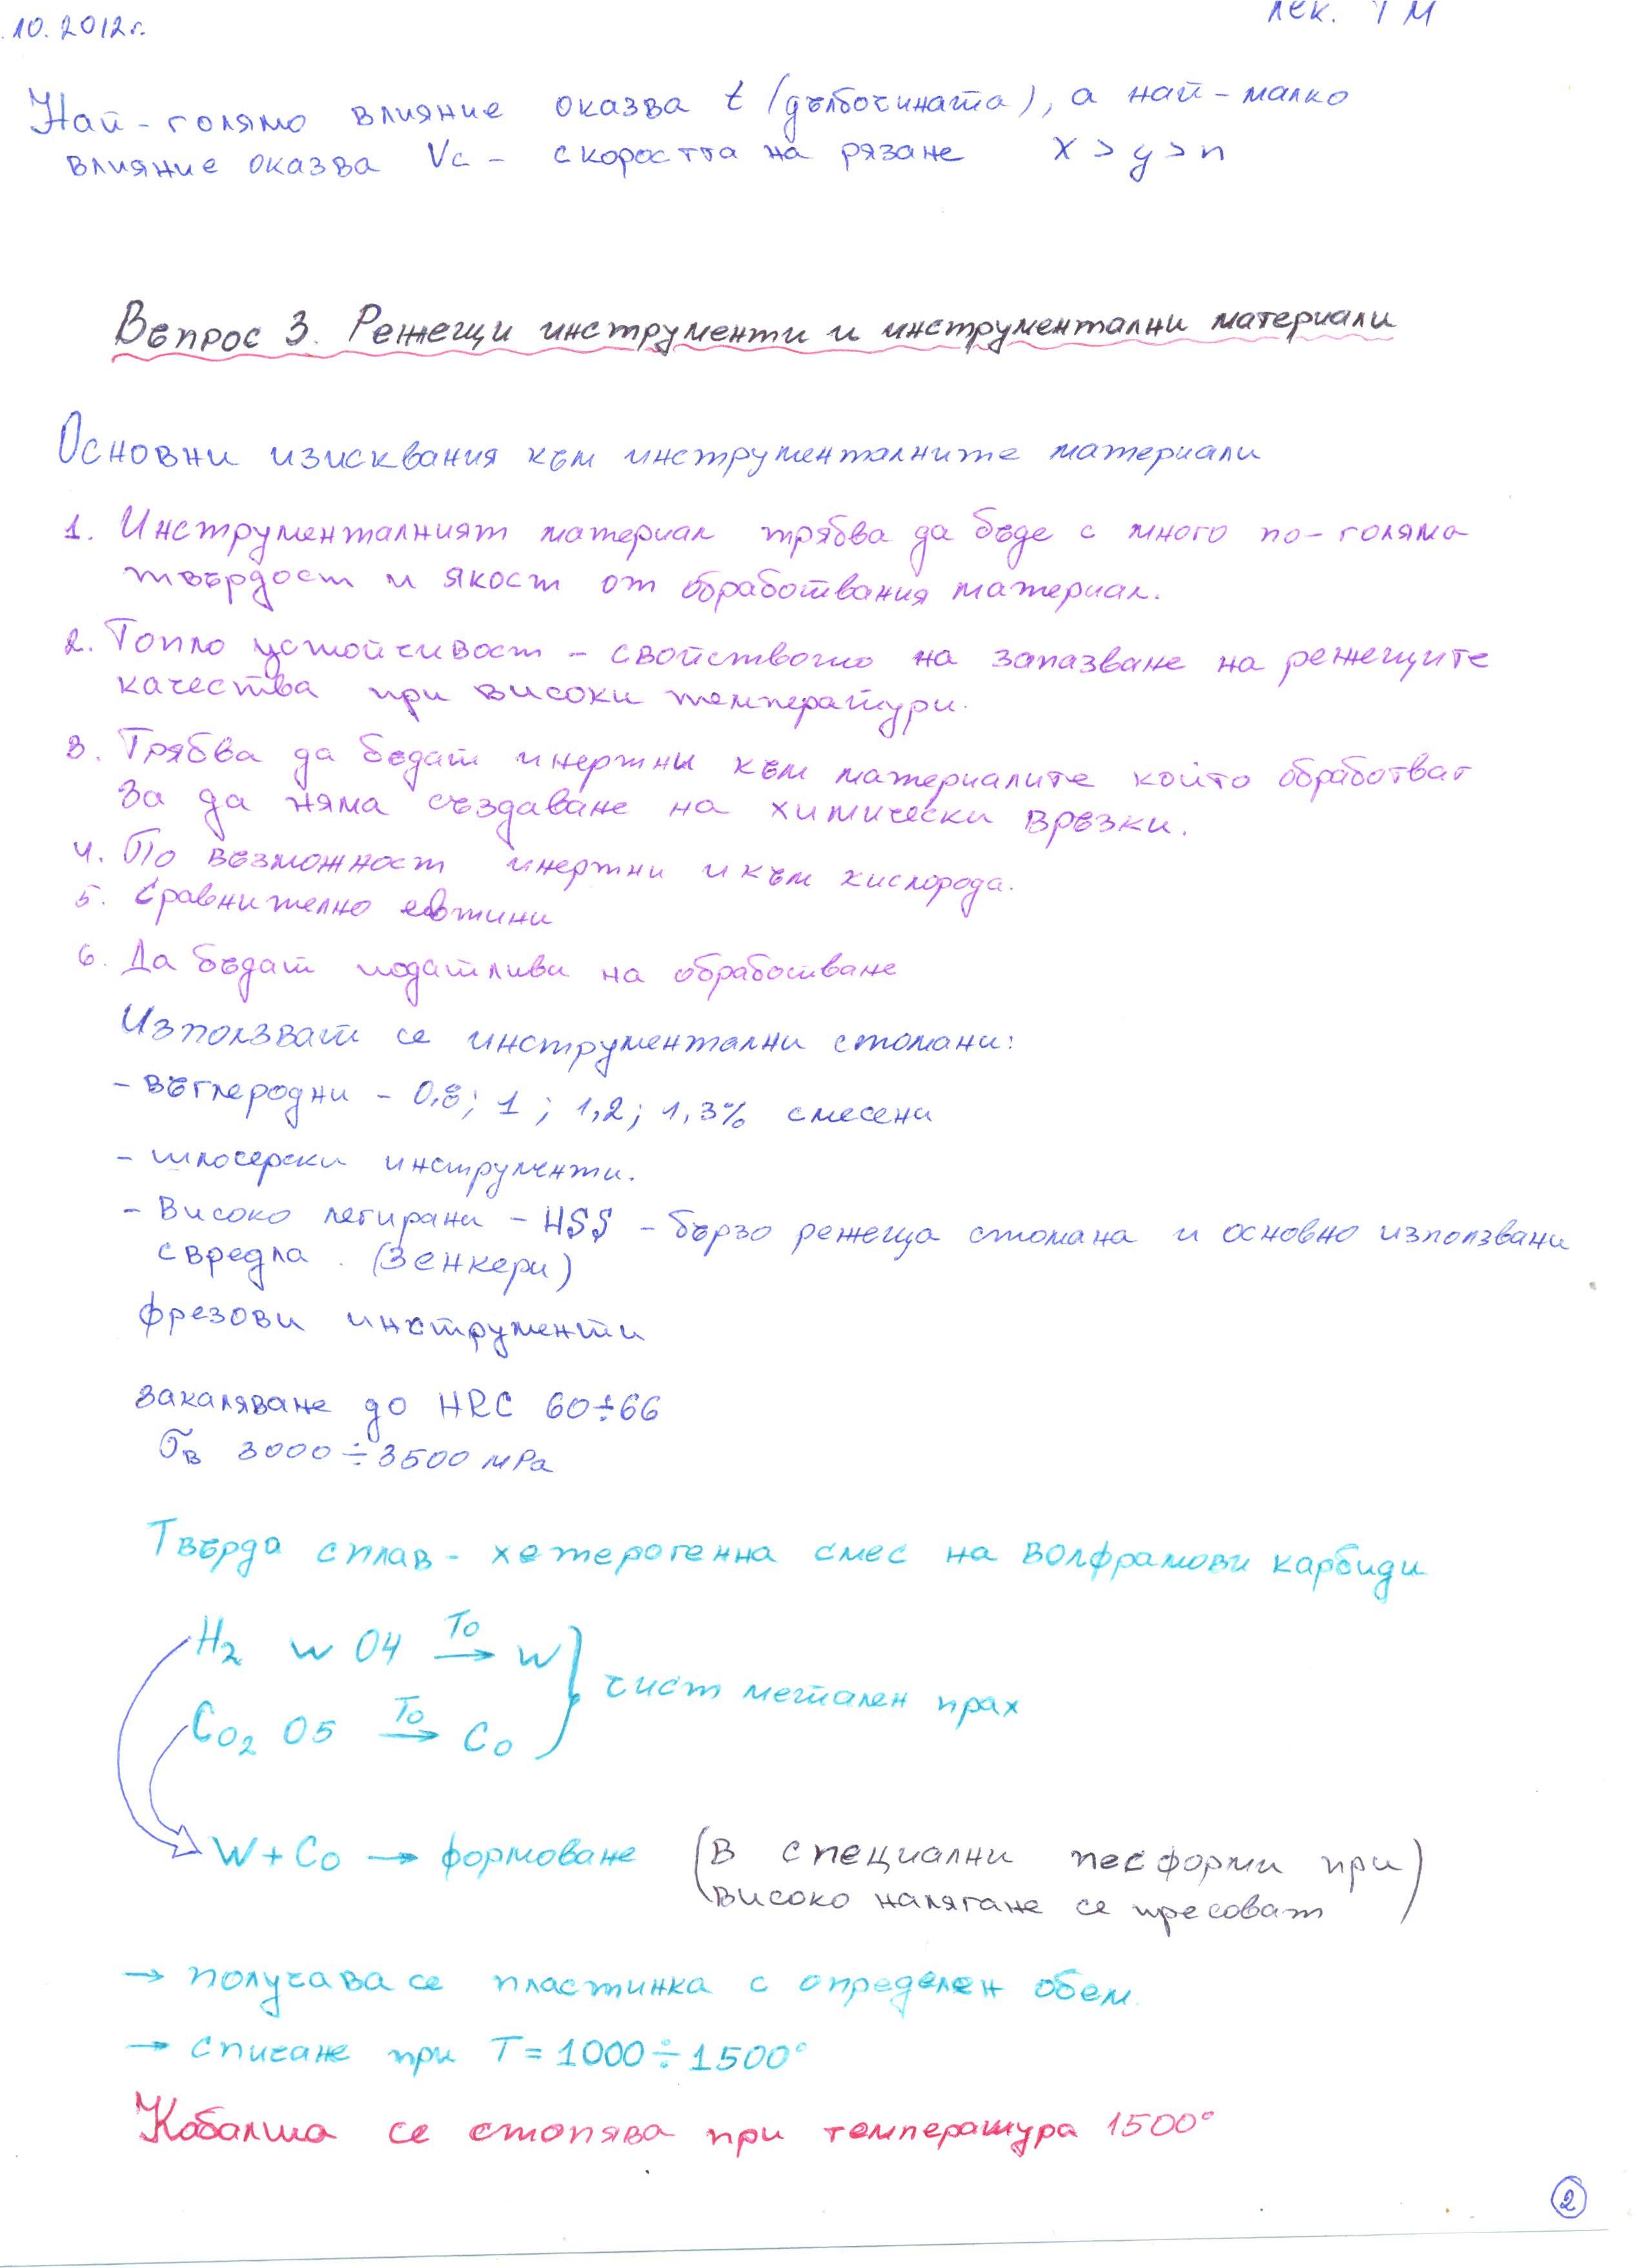 .10.2012г.
лек. ТМ
Най-голямо влияние оказва t (дълбочината), а най-малко
влияние оказва Vc - скоростта на рязане x > y > n
Въпрос 3. Режещи инструменти и инструментални материали
Основни изисквания към инструменталните материали
1. Инструменталният материал трябва да бъде с много по-голяма
твърдост и якост от обработвания материал.
2. Топло устойчивост - свойството на запазване на режещите
качества при високи температури.
3. Трябва да бъдат инертни към материалите който обработват
За да няма създаване на химически връзки.
4. По възможност инертни и към кислорода.
5. Сравнително евтини
6. Да бъдат податливи на обработване
Използват се инструментални стомани:
- въглеродни - 0,8; 1 ; 1,2; 1,3% смесени
- шлосерски инструменти.
- Високо легирани - HSS - бързо режеща стомана и основно използвани
свредла. (Зенкери)
фрезови инструменти
закаляване до HRC 60÷66
σв 3000÷3500 мPa
Твърда сплав - хетерогенна смес на волфрамови карбиди
H2 W O4 →To W } чист метален прах
Co2 O5 →To Co
W + Co → формоване (В специални песформи при
високо налягане се пресоват)
→ получава се пластинка с определен обем.
→ спичане при T = 1000÷1500°
Кобалта се стопява при температура 1500°
2